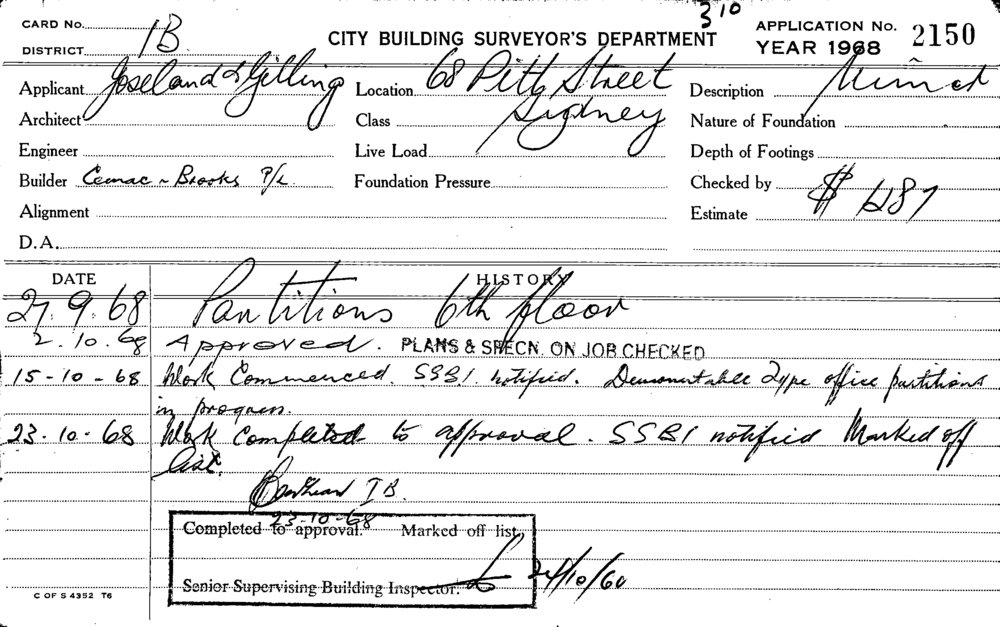 310
CARD No.
DISTRICT 1B
CITY BUILDING SURVEYOR'S DEPARTMENT
APPLICATION No. 2150
YEAR 1968
Applicant Joseland & Gilling
Location 68 Pitt Street
Sydney
Description
Architect
Class
Nature of Foundation
Engineer
Live Load
Depth of Footings
Builder Cemac - Brooks P/L.
Foundation Pressure
Checked by
Alignment
Estimate $
D.A.
DATE HISTORY
27.9.68 Partitions 6th floor
2.10.68 Approved. PLANS & SPECN. ON JOB CHECKED
15-10-68 Work Commenced. SSBI. notified. Demountable Type office partitions
in progress.
23.10.68 Work Completed to approval. SSBI notified Marked off
list.
23-10-68
Completed to approval. Marked off list,
Senior Supervising Building Inspector.
C OF S 4352 T6